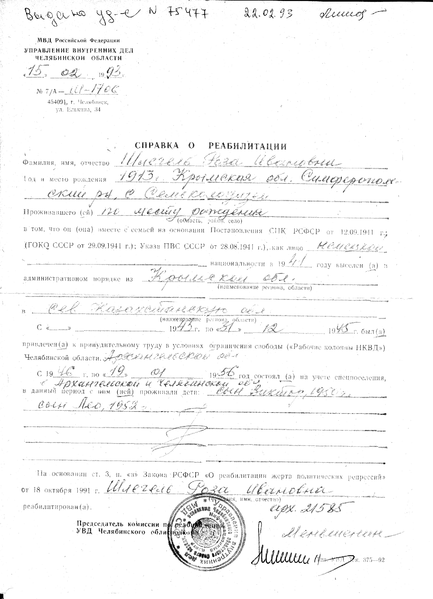 Выдано уд-е № 75477 22.02.93
МВД Российской Федерации
УПРАВЛЕНИЕ ВНУТРЕННИХ ДЕЛ
ЧЕЛЯБИНСКОЙ ОБЛАСТИ
15. 02 1993.
№ 7/А—Ш-1700
454091, г. Челябинск,
ул. Елькина, 34
СПРАВКА О РЕАБИЛИТАЦИИ
Фамилия, имя, отчество Шлегель Роза Ивановна
Год и место рождения 1913, Крымская обл. Симферополь-
ский рн, с
Проживавшего (ей) по месту рождения
(область, район, село)
в том, что он (она) вместе с семьей на основании Постановления СНК РСФСР от 12.09.1941 г.
(ГОКО СССР от 29.09.1941 г.; Указа ПВС СССР от 28.08.1941 г.), как лицо немецкой
национальности в 1941 году выселен (а) в
административном порядке из Крымской обл.
(наименование региона, области)
в Сев Казахстанскую обл
(наименование региона, области)
С 1943 г. по 31 12 1945 г. был(а)
привлечен(а) к принудительному труду в условиях ограничения свободы («Рабочие колонны НКВД»)
Челябинской области, Архангельской обл
С 1946 г. по 19 01 1956 год состоял (а) на учете спецпоселения,
в Архангельской и Челябинской обл
в данный период с ним (ней) проживали дети: сын Виктор, 1950
сын Лео, 1952
На основании ст. 3, п. «в» Закона РСФСР «О реабилитации жертв политических репрессий»
от 18 октября 1991 г. Шлегель Роза Ивановна
(фамилия, имя, отчество)
реабилитирован(а). арх. 21585
Председатель комиссии по реабилитации
УВД Челябинской области